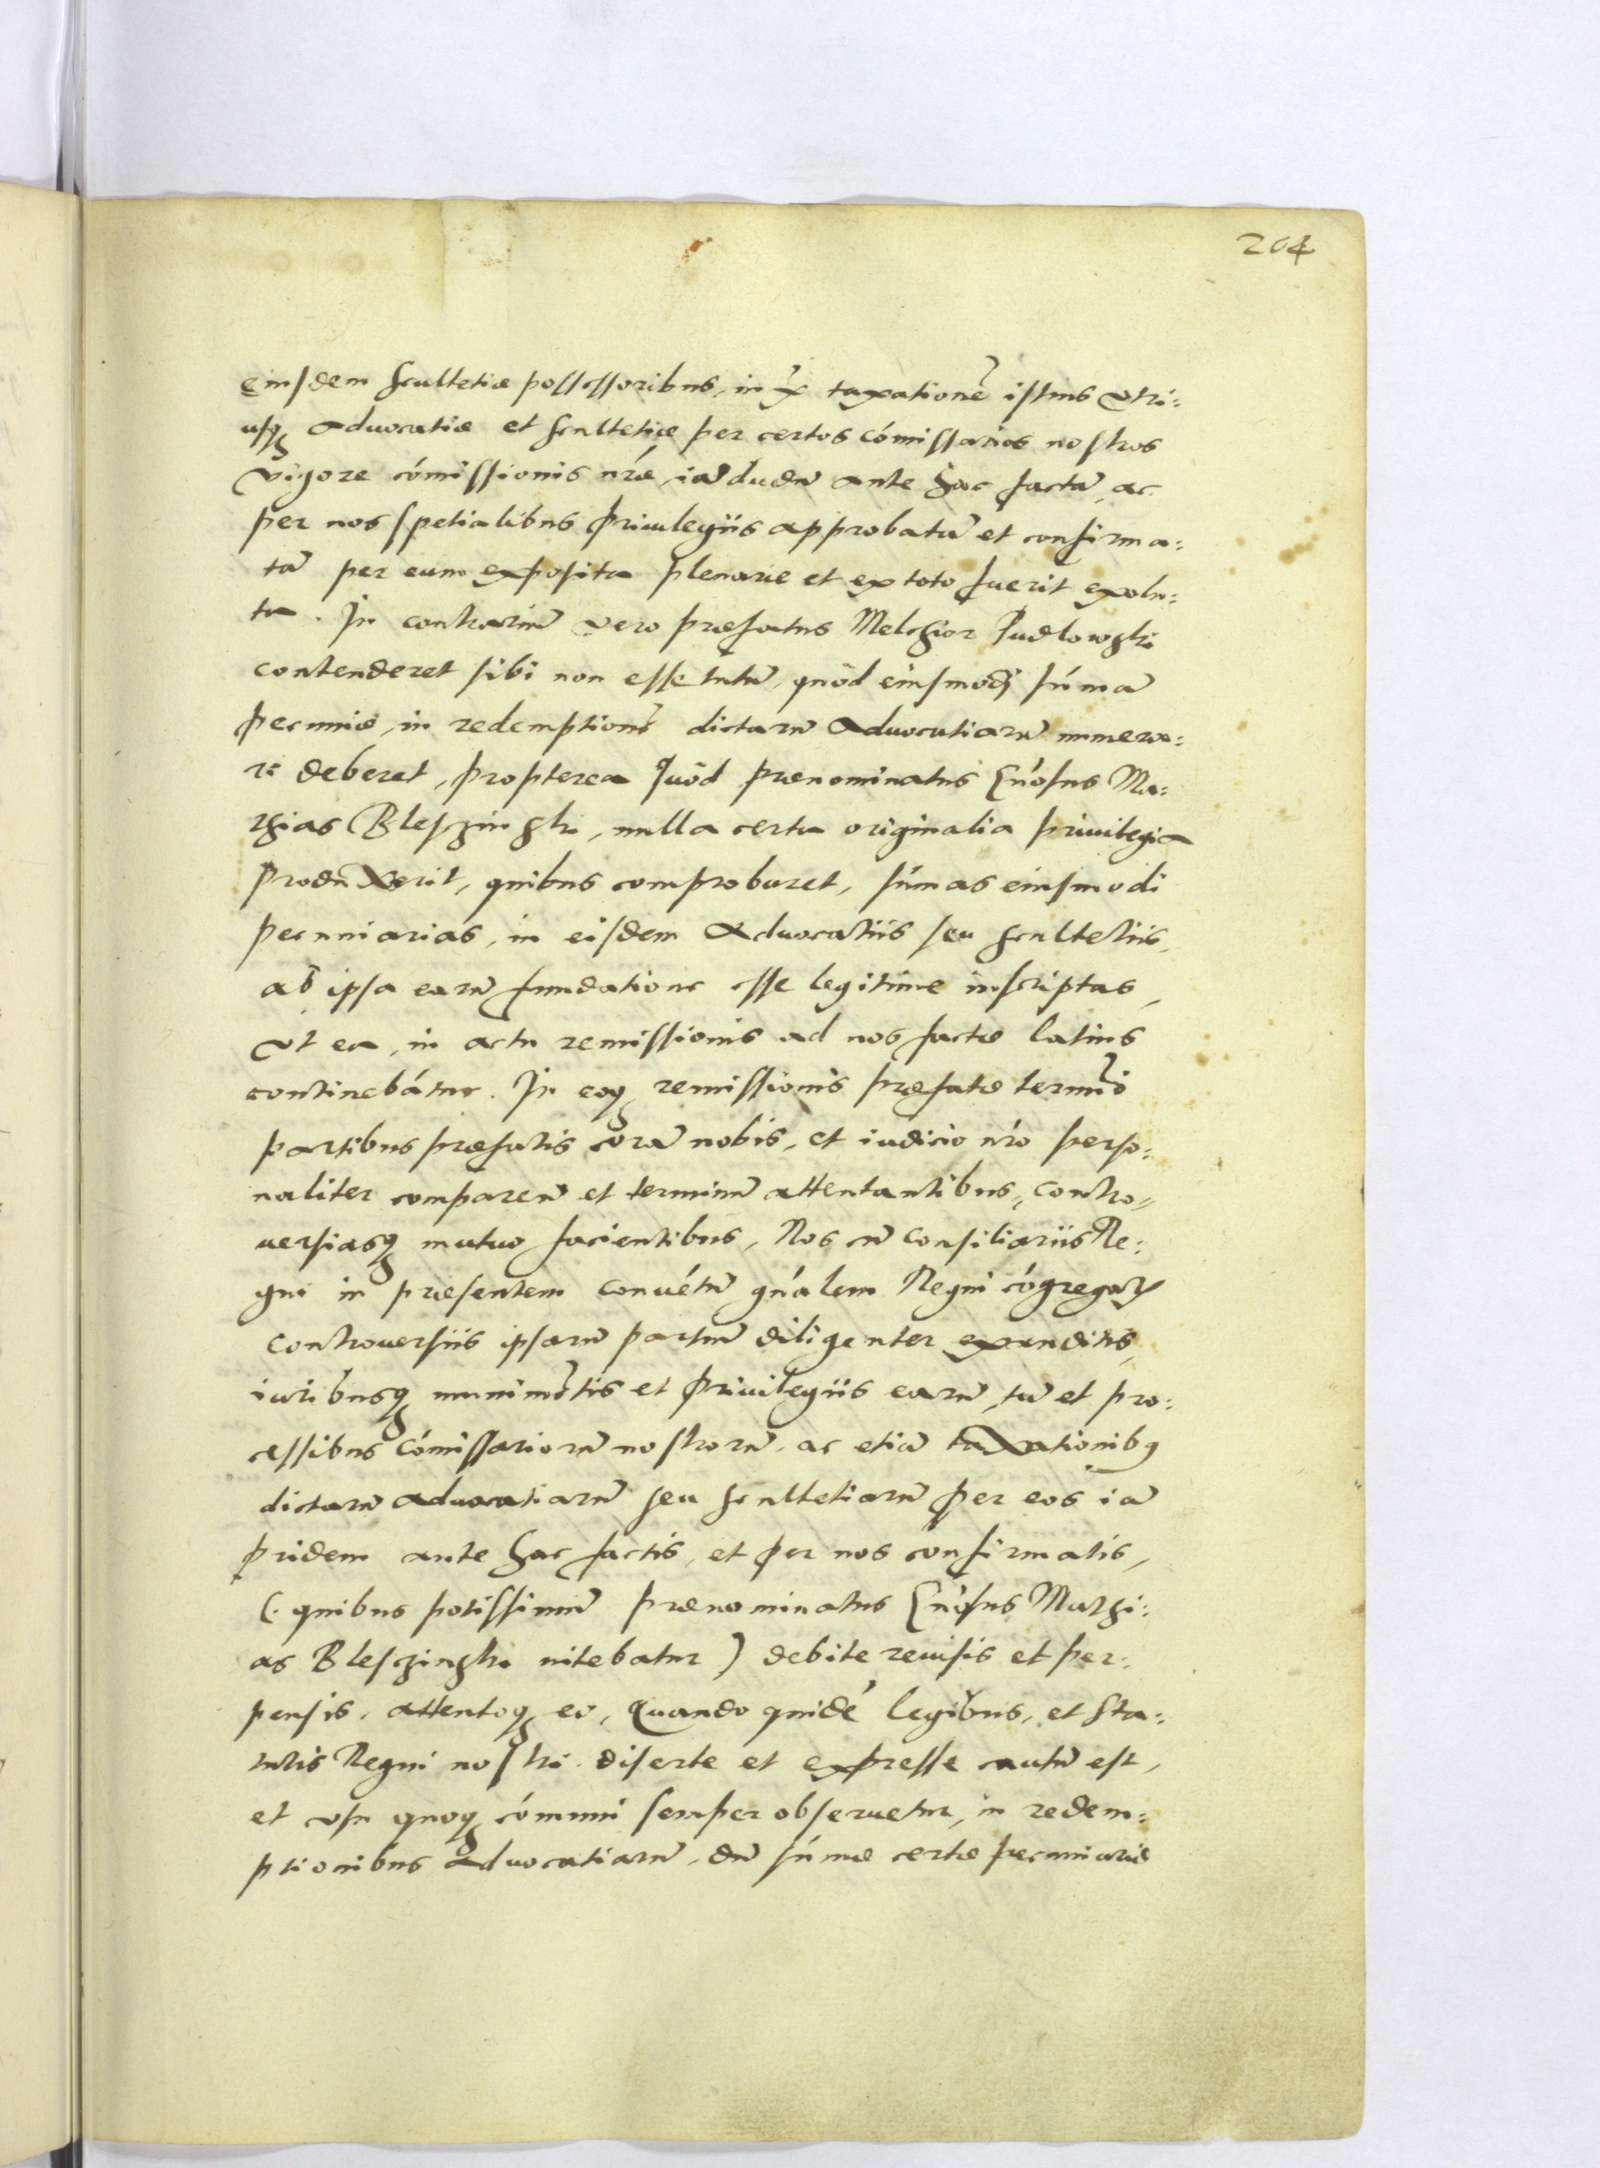 204
eiusdem scultetiæ possessoribus, in taxationē istius vtri:
usq aduocatiæ et scultetiæ per certos cómissarios nostros
vigore cómissionis nrǽ, iā dudū ante hac factā, ac
per nos spetialibus priuilegiis approbatā et confirma:
tā per eum exposita plenarie et ex toto fuerit exolu:
ta. In contrariū vero præfatus Melchior Pudlowski
contenderet sibi non esse tutū, quòd eiusmodj súmā
pecuniæ, in redemptionē dictarū Aduocatiarū numera:
ri deberet, propterea quòd prænominatus Gn̄osus Ma:
thias Bleszinski, nulla certa originalia priuilegia
produxerit, quibus comprobaret, súmas eiusmodi
pecuniarias, in eisdem Aduocatiis seu scultetiis,
ab ipsa earū fundatione esse legitime inscriptas,
vt ea, in actu remissionis ad nos factæ latius
continebátur. In eoq remissionis præfatæ termīo
partibus præfatis corā nobis, et iudicio nr̄o perso:
naliter comparen̄ et terminū attentantibus, contro:
uersiasq mutuo facientibus, Nos cū Consiliariis Re:
gni in præsentem conuétū gn̄alem Regni cógregatis
controuersiis ipsarū partiū diligenter exauditis,
iuribusq munimētis et priuilegiis earū, tū et pro:
cessibus cómissariorū nostrorū, ac etiā taxationibq
dictarū aduocatiarū seu scultetiarū per eos iā
pridem ante hac factis, et per nos confirmatis,
(quibus potissimū prænominatus Gn̄osus Mathi:
as Bleszinski nitebatur) debite reuisis et per:
pensis, attentoq eo, Quando quidē legibus, et Sta:
tutis Regni nostri diserte et expresse cautū est,
et vsu quoq cómuni semper obseruetur, in redem:
ptionibus aduocatiarū, dū súmæ certæ pecuniariæ